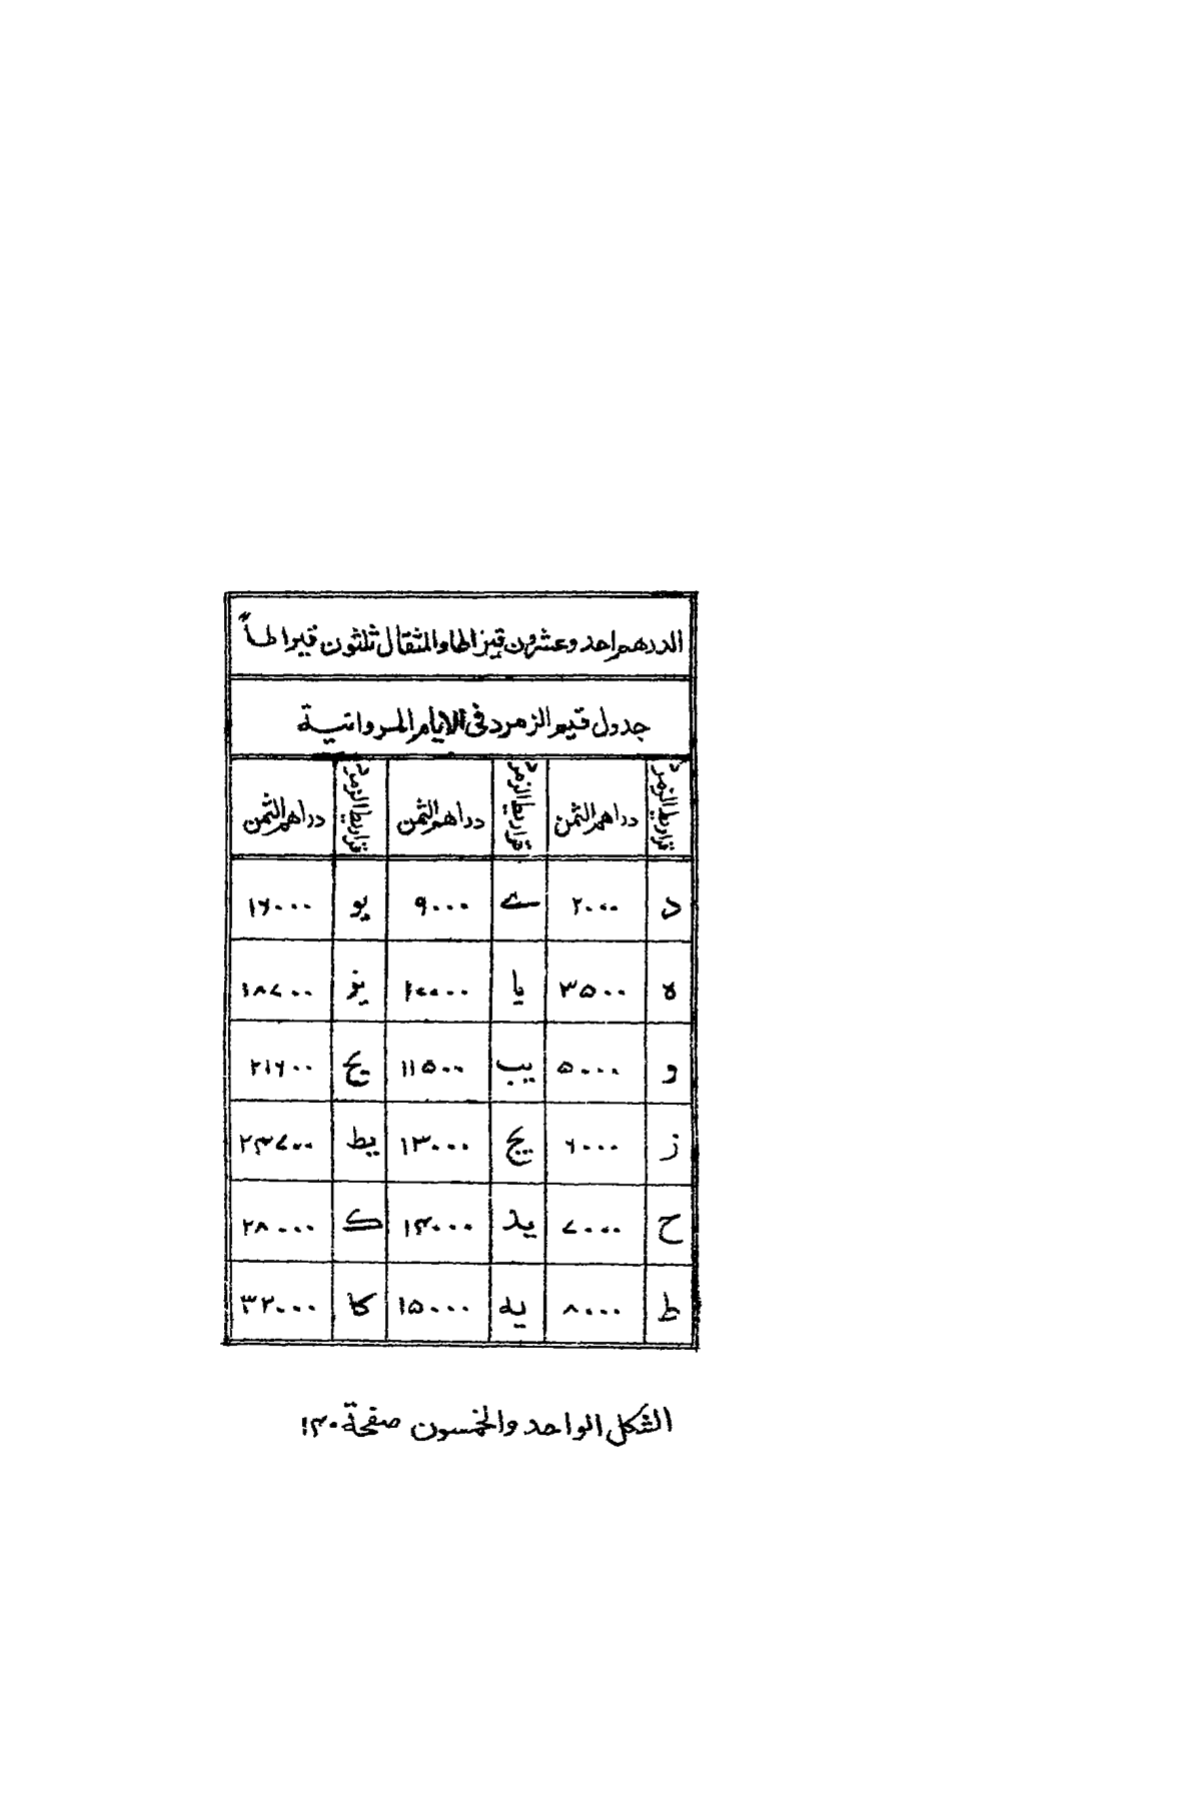 الدرهم احد وعشرون قيراطا والمثقال ثلثون قيراطاً
جدول قيم الزمرد فى الايام المروانية
قراريط الزمرد دراهم الثمن قراريط الزمرد دراهم الثمن قراريط الزمرد دراهم الثمن
د ٢٠٠٠ ے ٩٠٠٠ يو ١٦٠٠٠
ه ٣٥٠٠ يا ١٠٠٠٠ يز ١٨٧٠٠
و ٥٠٠٠ يب ١١٥٠٠ يح ٢١٦٠٠
ز ٦٠٠٠ يج ١٣٠٠٠ يط ٢٤٧٠٠
ح ٧٠٠٠ يد ١٤٠٠٠ ك ٢٨٠٠٠
ط ٨٠٠٠ يه ١٥٠٠٠ كا ٣٢٠٠٠
الشكل الواحد والخمسون صفحة ١٤٠